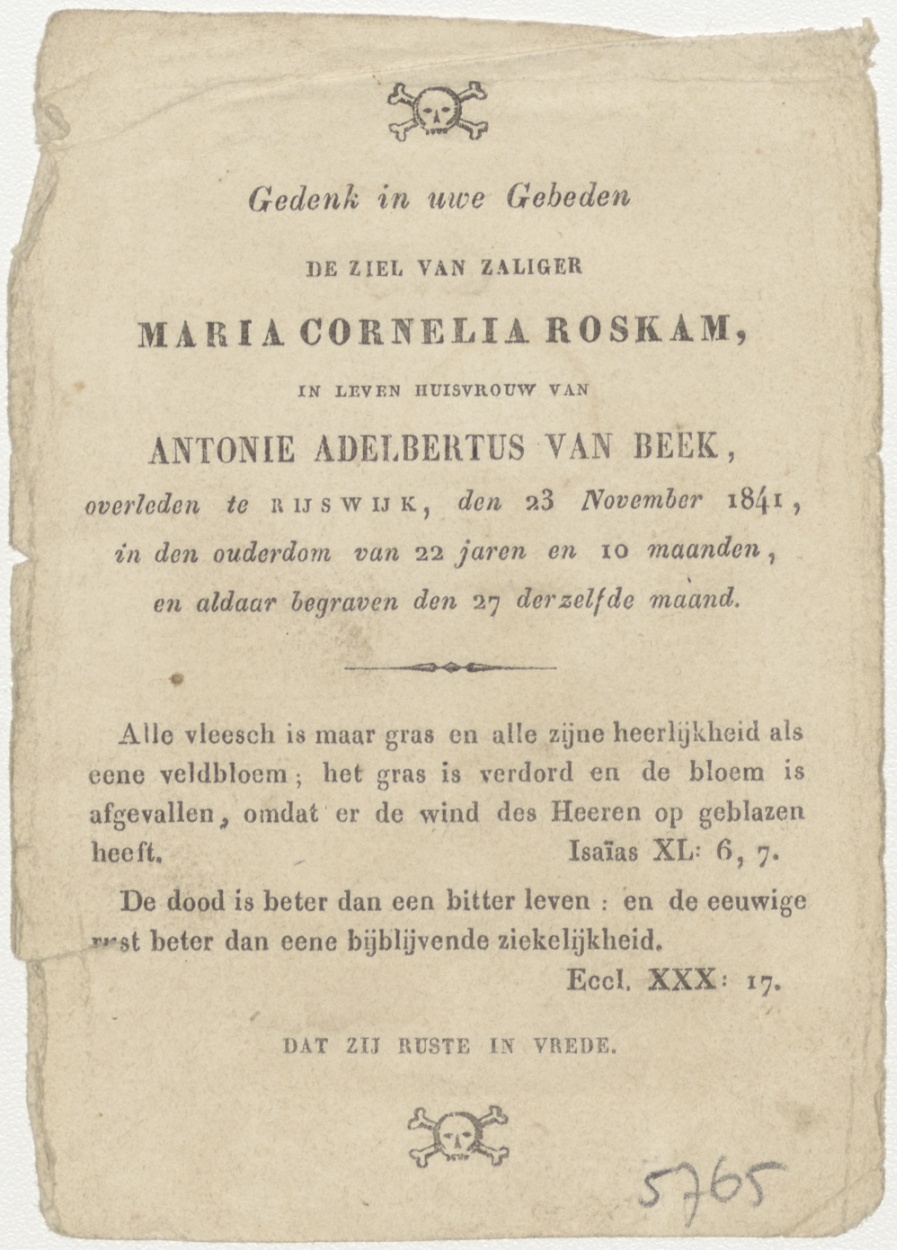 Gedenk in uwe Gebeden
DE ZIEL VAN ZALIGER
MARIA CORNELIA ROSKAM,
IN LEVEN HUISVROUW VAN
ANTONIE ADELBERTUS VAN BEEK,
overleden te RIJSWIJK, den 23 November 1841,
in den ouderdom van 22 jaren en 10 maanden,
en aldaar begraven den 27 derzelfde maand.
Alle vleesch is maar gras en alle zijne heerlijkheid als
eene veldbloem; het gras is verdord en de bloem is
afgevallen, omdat er de wind des Heeren op geblazen
heeft. Isaïas XL: 6, 7.
De dood is beter dan een bitter leven : en de eeuwige
rust beter dan eene bijblijvende ziekelijkheid.
Eccl. XXX: 17.
DAT ZIJ RUSTE IN VREDE.
5765